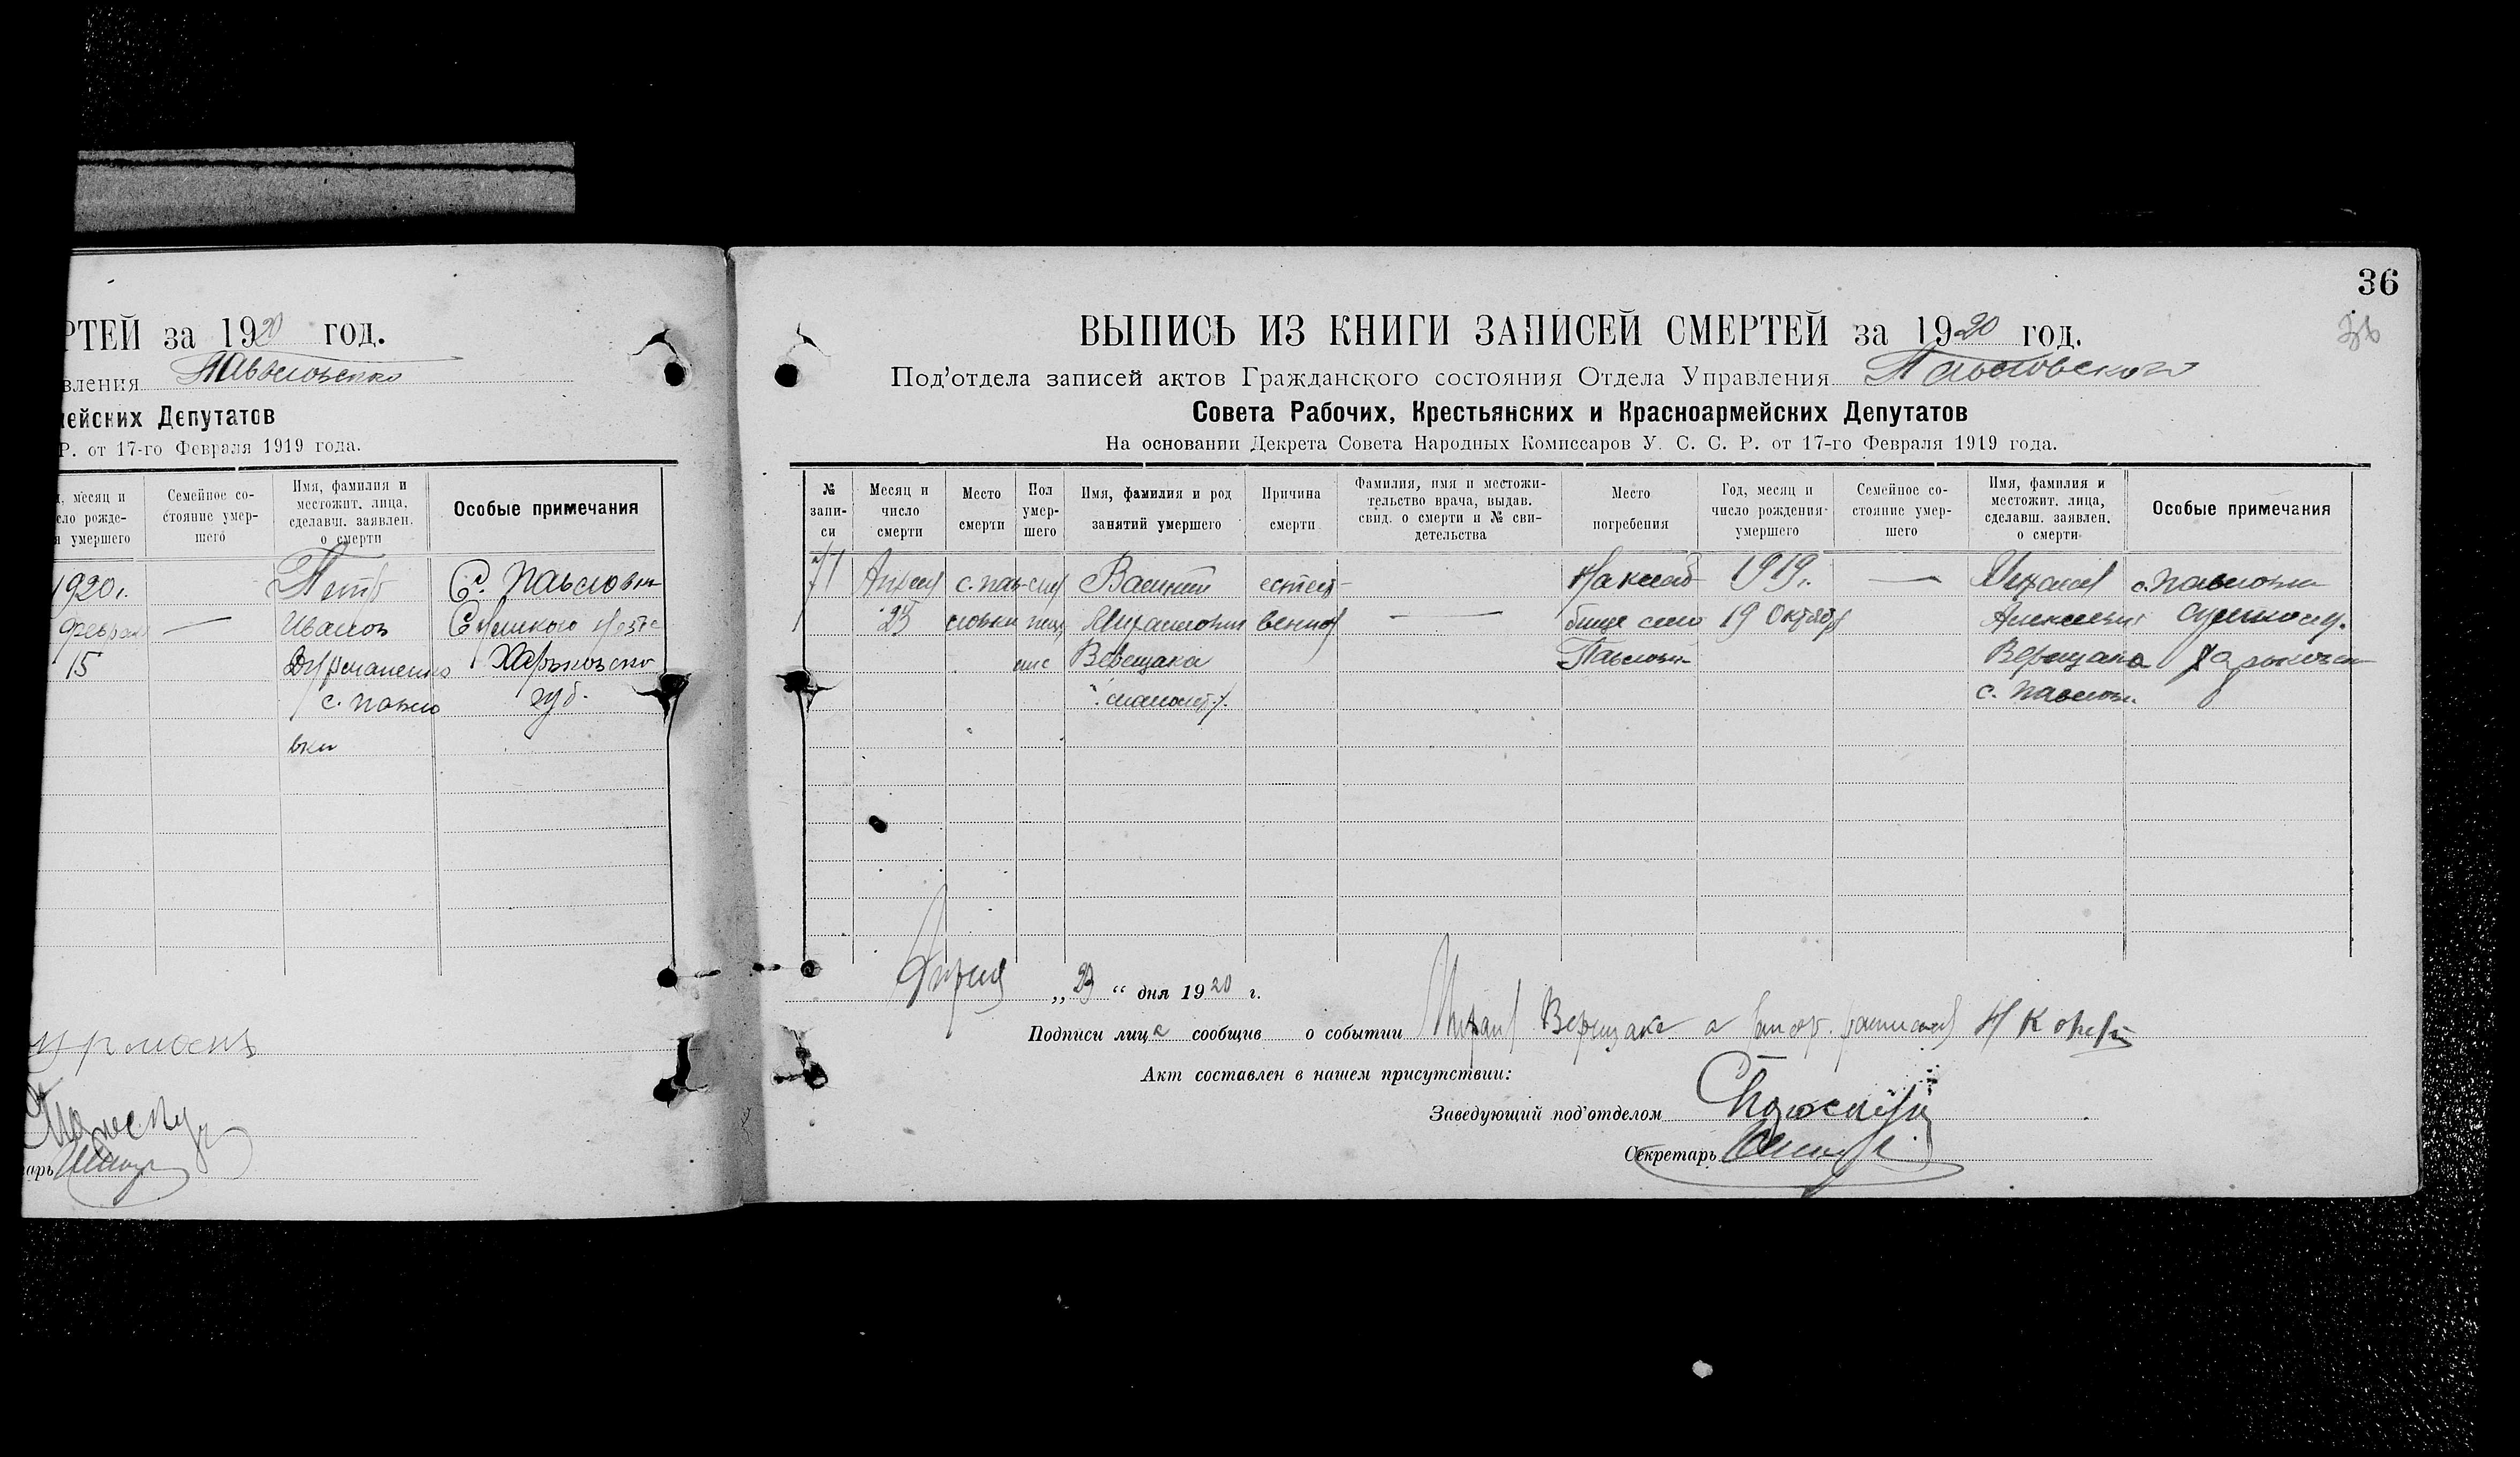 РТЕЙ за 1920 год.
вления
мейских Депутатов
Р. от 17-го Февраля 1919 года.
месяц и
сло рожде-
я умершего
Семейное со-
стояние умер-
шего
Имя, фамилия и
местожит. лица,
сделавш. заявлен.
о смерти
Особые примечания
1920 г.
15
Петр
Иванов
с. Павло
вки
С. Павловки
губ.
арь
36
36
ВЫПИСЬ ИЗ КНИГИ ЗАПИСЕЙ СМЕРТЕЙ за 1920 год.
Под'отдела записей актов Гражданского состояния Отдела Управления Павловского
Совета Рабочих, Крестьянских и Красноармейских Депутатов
На основании Декрета Совета Народных Комиссаров У. С. С. Р. от 17-го Февраля 1919 года.
№
запи-
си
Месяц и
число
смерти
Место
смерти
Пол
умер-
шего
Имя, фамилия и род
занятий умершего
Причина
смерти
Фамилия, имя и местожи-
тельство врача, выдав.
свид. о смерти и № сви-
детельства
Место
погребения
Год, месяц и
число рождения
умершего
Семейное со-
стояние умер-
шего
Имя, фамилия и
местожит. лица,
сделавш. заявлен.
о смерти
Особые примечания
71
Апреля
23
с. Пав-
ловки
Василий
Михайлович
Верещака
естест-
венной
На клад-
бище села
Павловки
1919 г.
19 Октября
Михаил
Алексеевич
Верещака
с. Павловки
с. Павловки
Апреля „ 23 “ дня 1920 г.
Подписи лица сообщив о событии Михаил Верещака а
Акт составлен в нашем присутствии:
Заведующий под'отделом
Секретарь